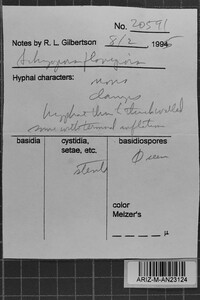 No. 20591
Notes by R. L. Gilbertson 8/2 1995
Schizopora flavipora
Hyphal characters: mono
clamps
hyphae thin to thick walled
some with terminal inflation
basidia cystidia, basidiospores
setae, etc.
color
Melzer's
μ
ARIZ-M-AN23124